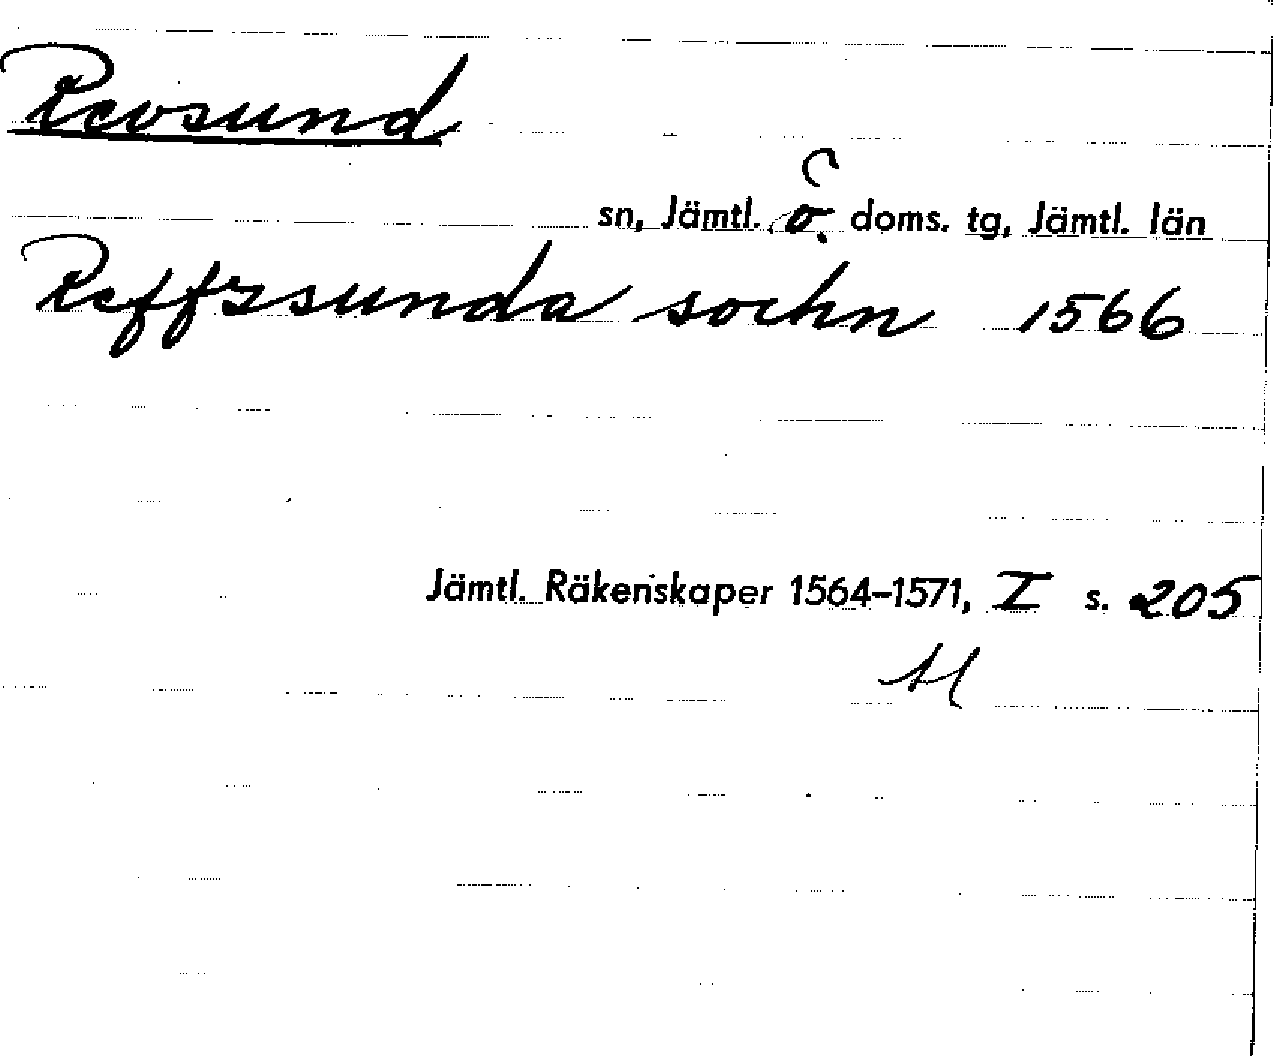 Revsund
sn, Jämtl. ö. doms. tg, Jämtl. län
Reffzsunda sochn 1566
Jämtl. Räkenskaper 1564–1571, I s. 205